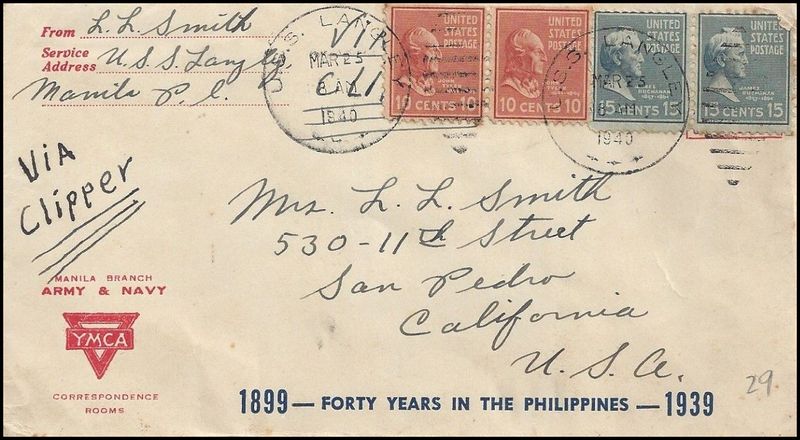 From L. L. Smith
Service Address U.S.S. Langley
Manila P.I.
U.S.S. LANGLEY
MAR 25
8 AM
1940
UNITED STATES POSTAGE
JOHN TYLER
10 CENTS 10
UNITED STATES POSTAGE
JOHN TYLER
10 CENTS 10
UNITED STATES POSTAGE
JAMES BUCHANAN
15 CENTS 15
UNITED STATES POSTAGE
JAMES BUCHANAN
15 CENTS 15
U.S.S. LANGLEY
MAR 25
8 AM
1940
Via
Clipper
Mrs. L. L. Smith
530-11th Street
San Pedro
California
U.S.A.
MANILA BRANCH
ARMY & NAVY
YMCA
CORRESPONDENCE
ROOMS
1899 — FORTY YEARS IN THE PHILIPPINES — 1939
29